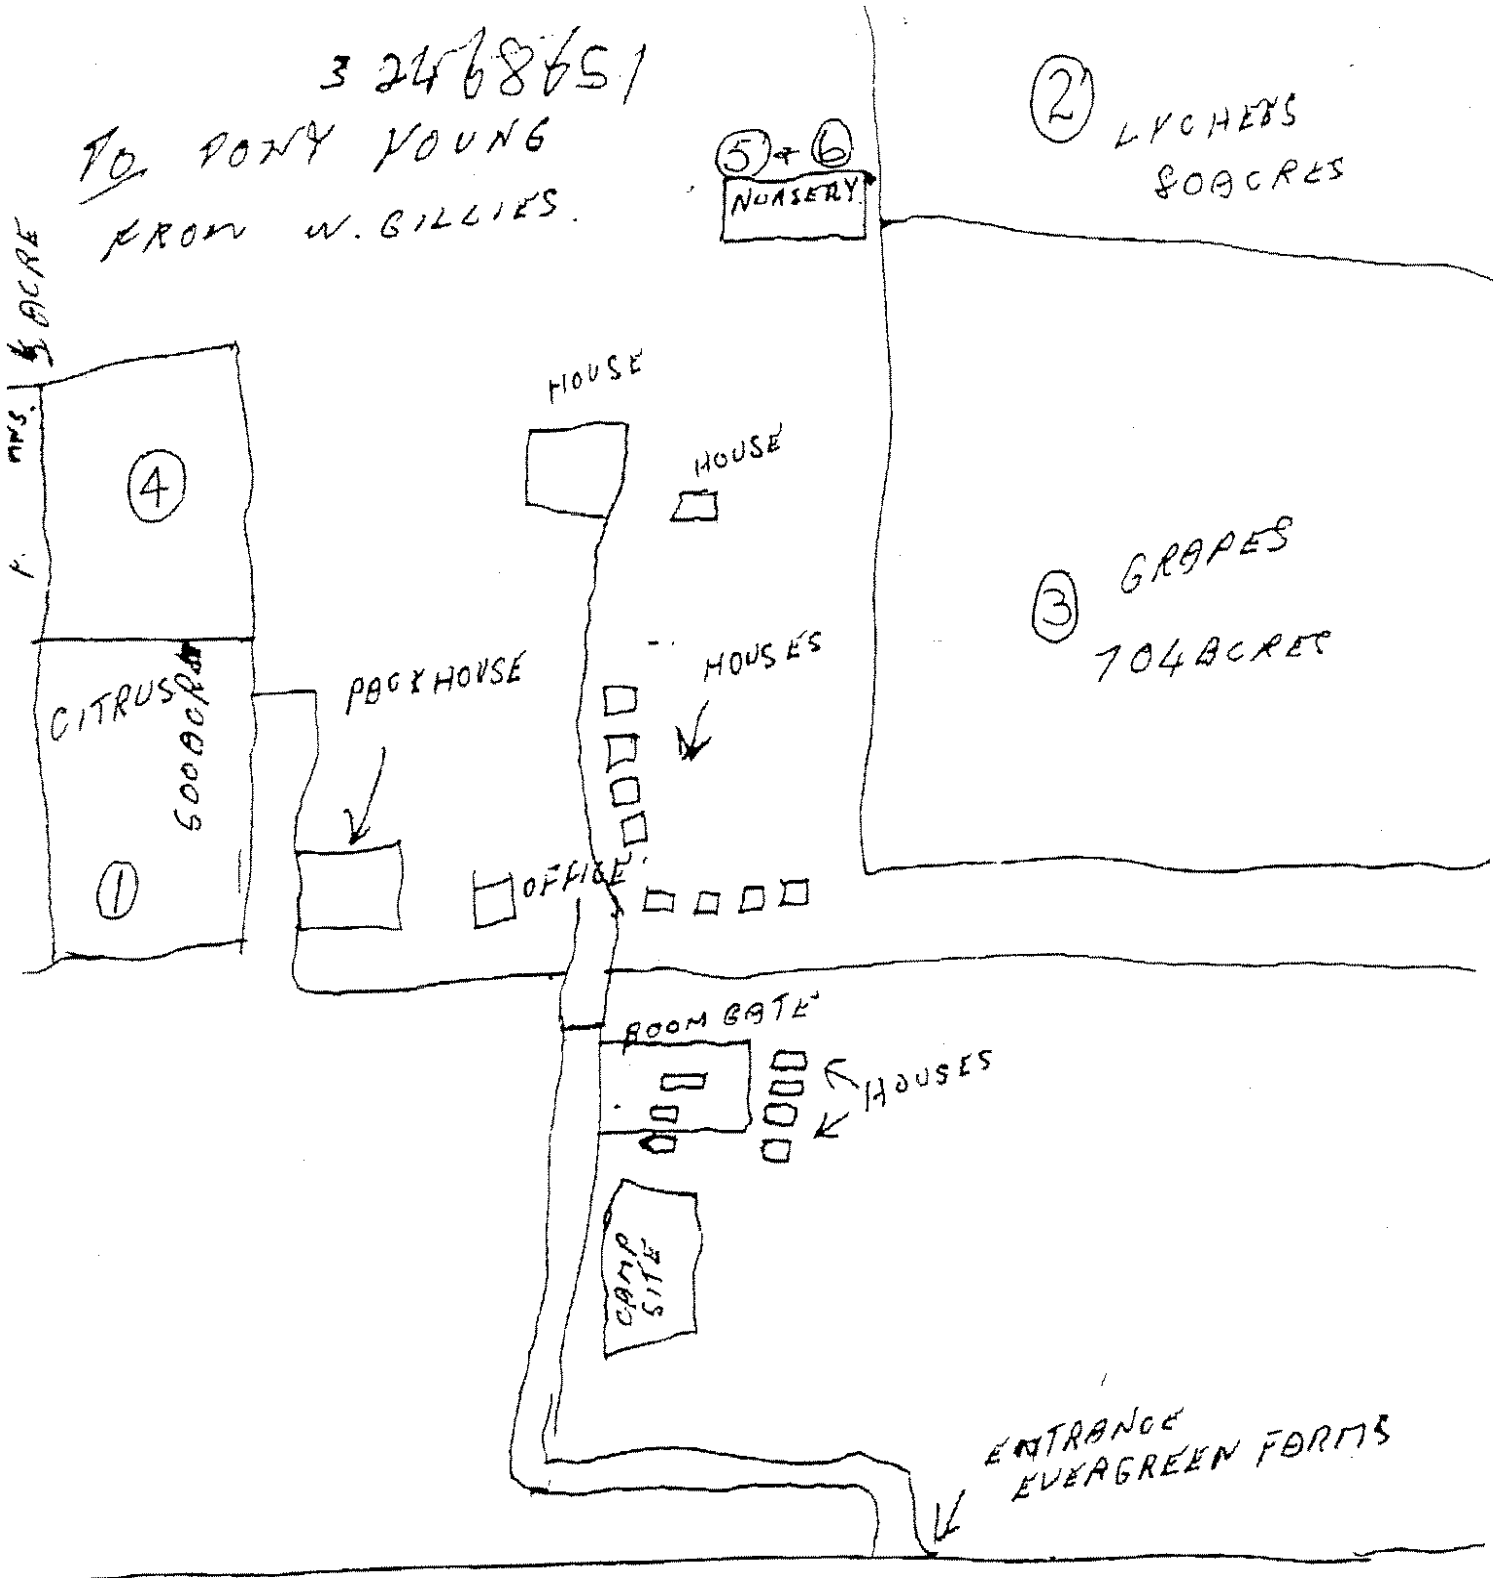 3 2468651
TO PONY YOUNG
FROM W. GILLIES.
2 LYCHEES
80 ACRES
5 + 6
NURSERY
ACRE
4
HOUSE
HOUSE
3 GRAPES
704 ACRES
CITRUS
PACKHOUSE
HOUSES
1
OFFICE
BOOM GATE
HOUSES
CAMP
SITE
ENTRANCE
EVERGREEN FARMS